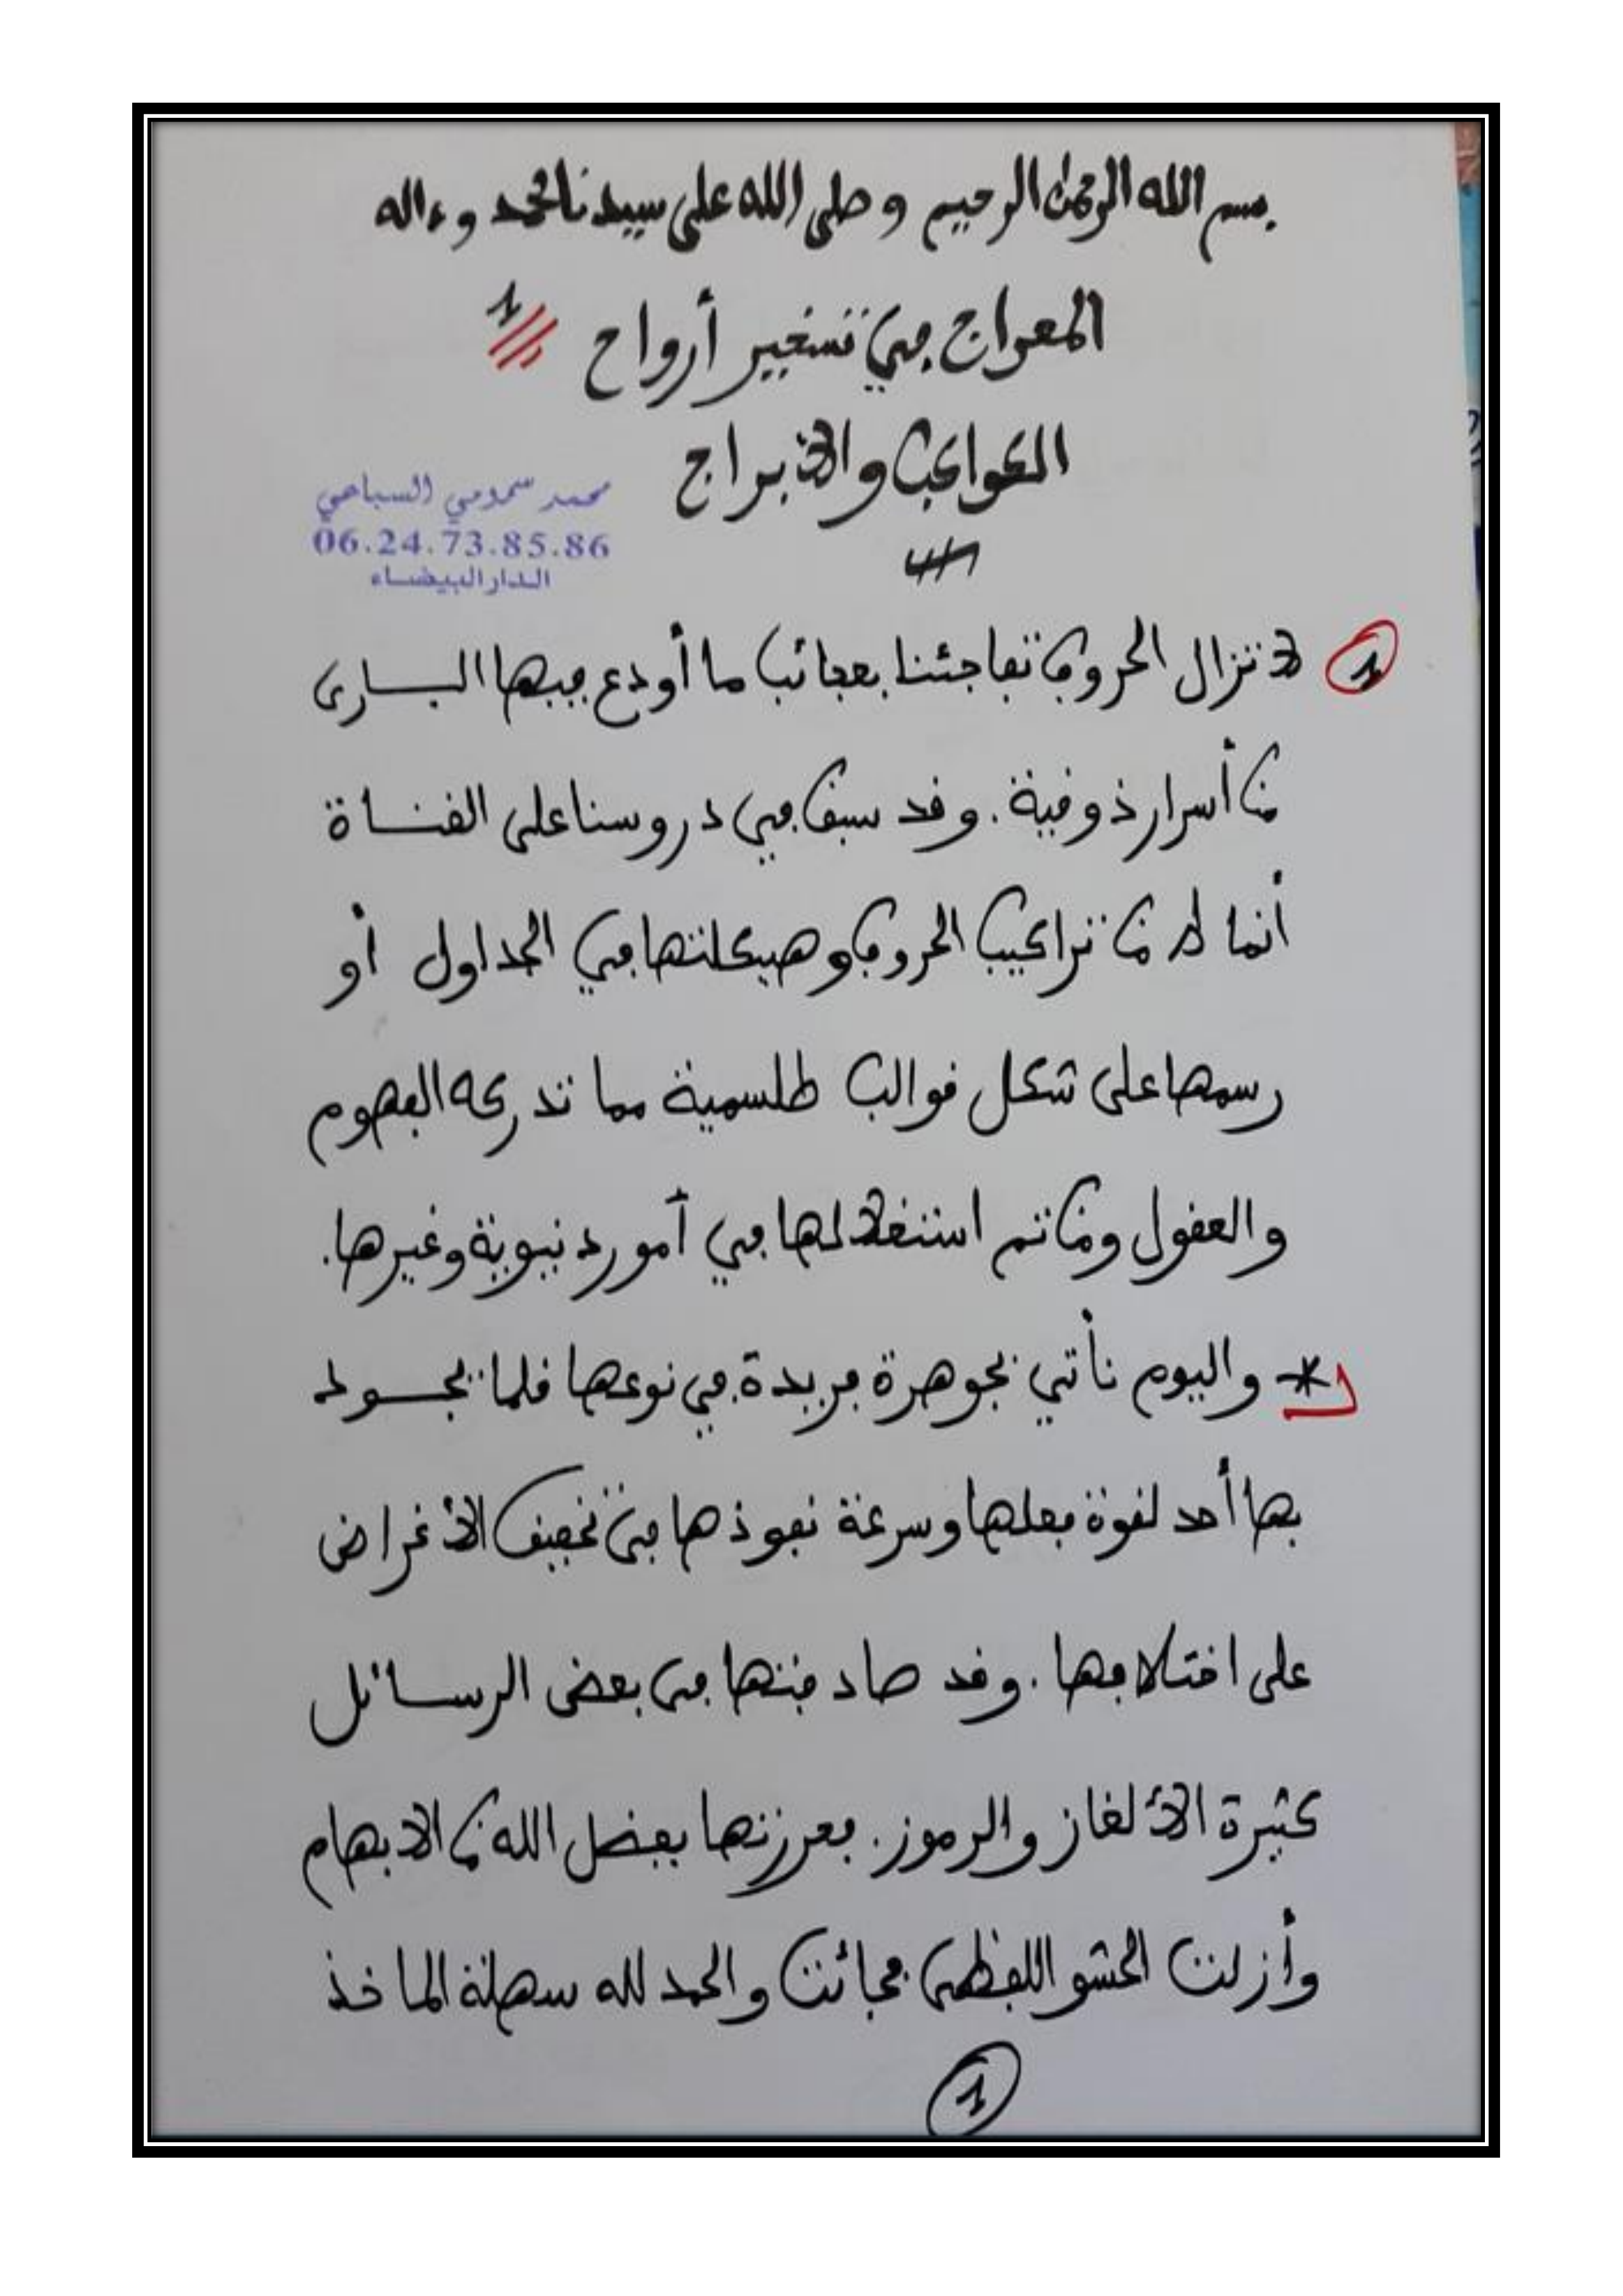 بسم الله الرحمن الرحيم وصلى الله على سيدنا محمد وءاله
المعراج في تسخير أرواح 1
الكواكب والأبراج
محمد سمومي السباعي
06.24.73.85.86
الدار البيضاء
1 لا تزال الحروف تفاجئنا بعجائب ما أودع فيها البارى
من أسرار ذوقية. وقد سبق في دروسنا على القناة
أنما لا من تراكيب الحروف وهيكلتها في الجداول أو
رسمها على شكل قوالب طلسمية مما تدركه الفهوم
والعقول ومن تم استغلالها في أمور دنيوية وغيرها.
* واليوم نأتي بجوهرة فريدة في نوعها قلما يجود
بها أحد لقوة فعلها وسرعة نفوذها في تحقيق الأغراض
على اختلافها. وقد صادفتها في بعض الرسائل
كثيرة الألغاز والرموز. فعرزتها بفضل الله من الابهام
وأزلت الحشو اللفظي فجائت والحمد لله سهلة الماخذ
1